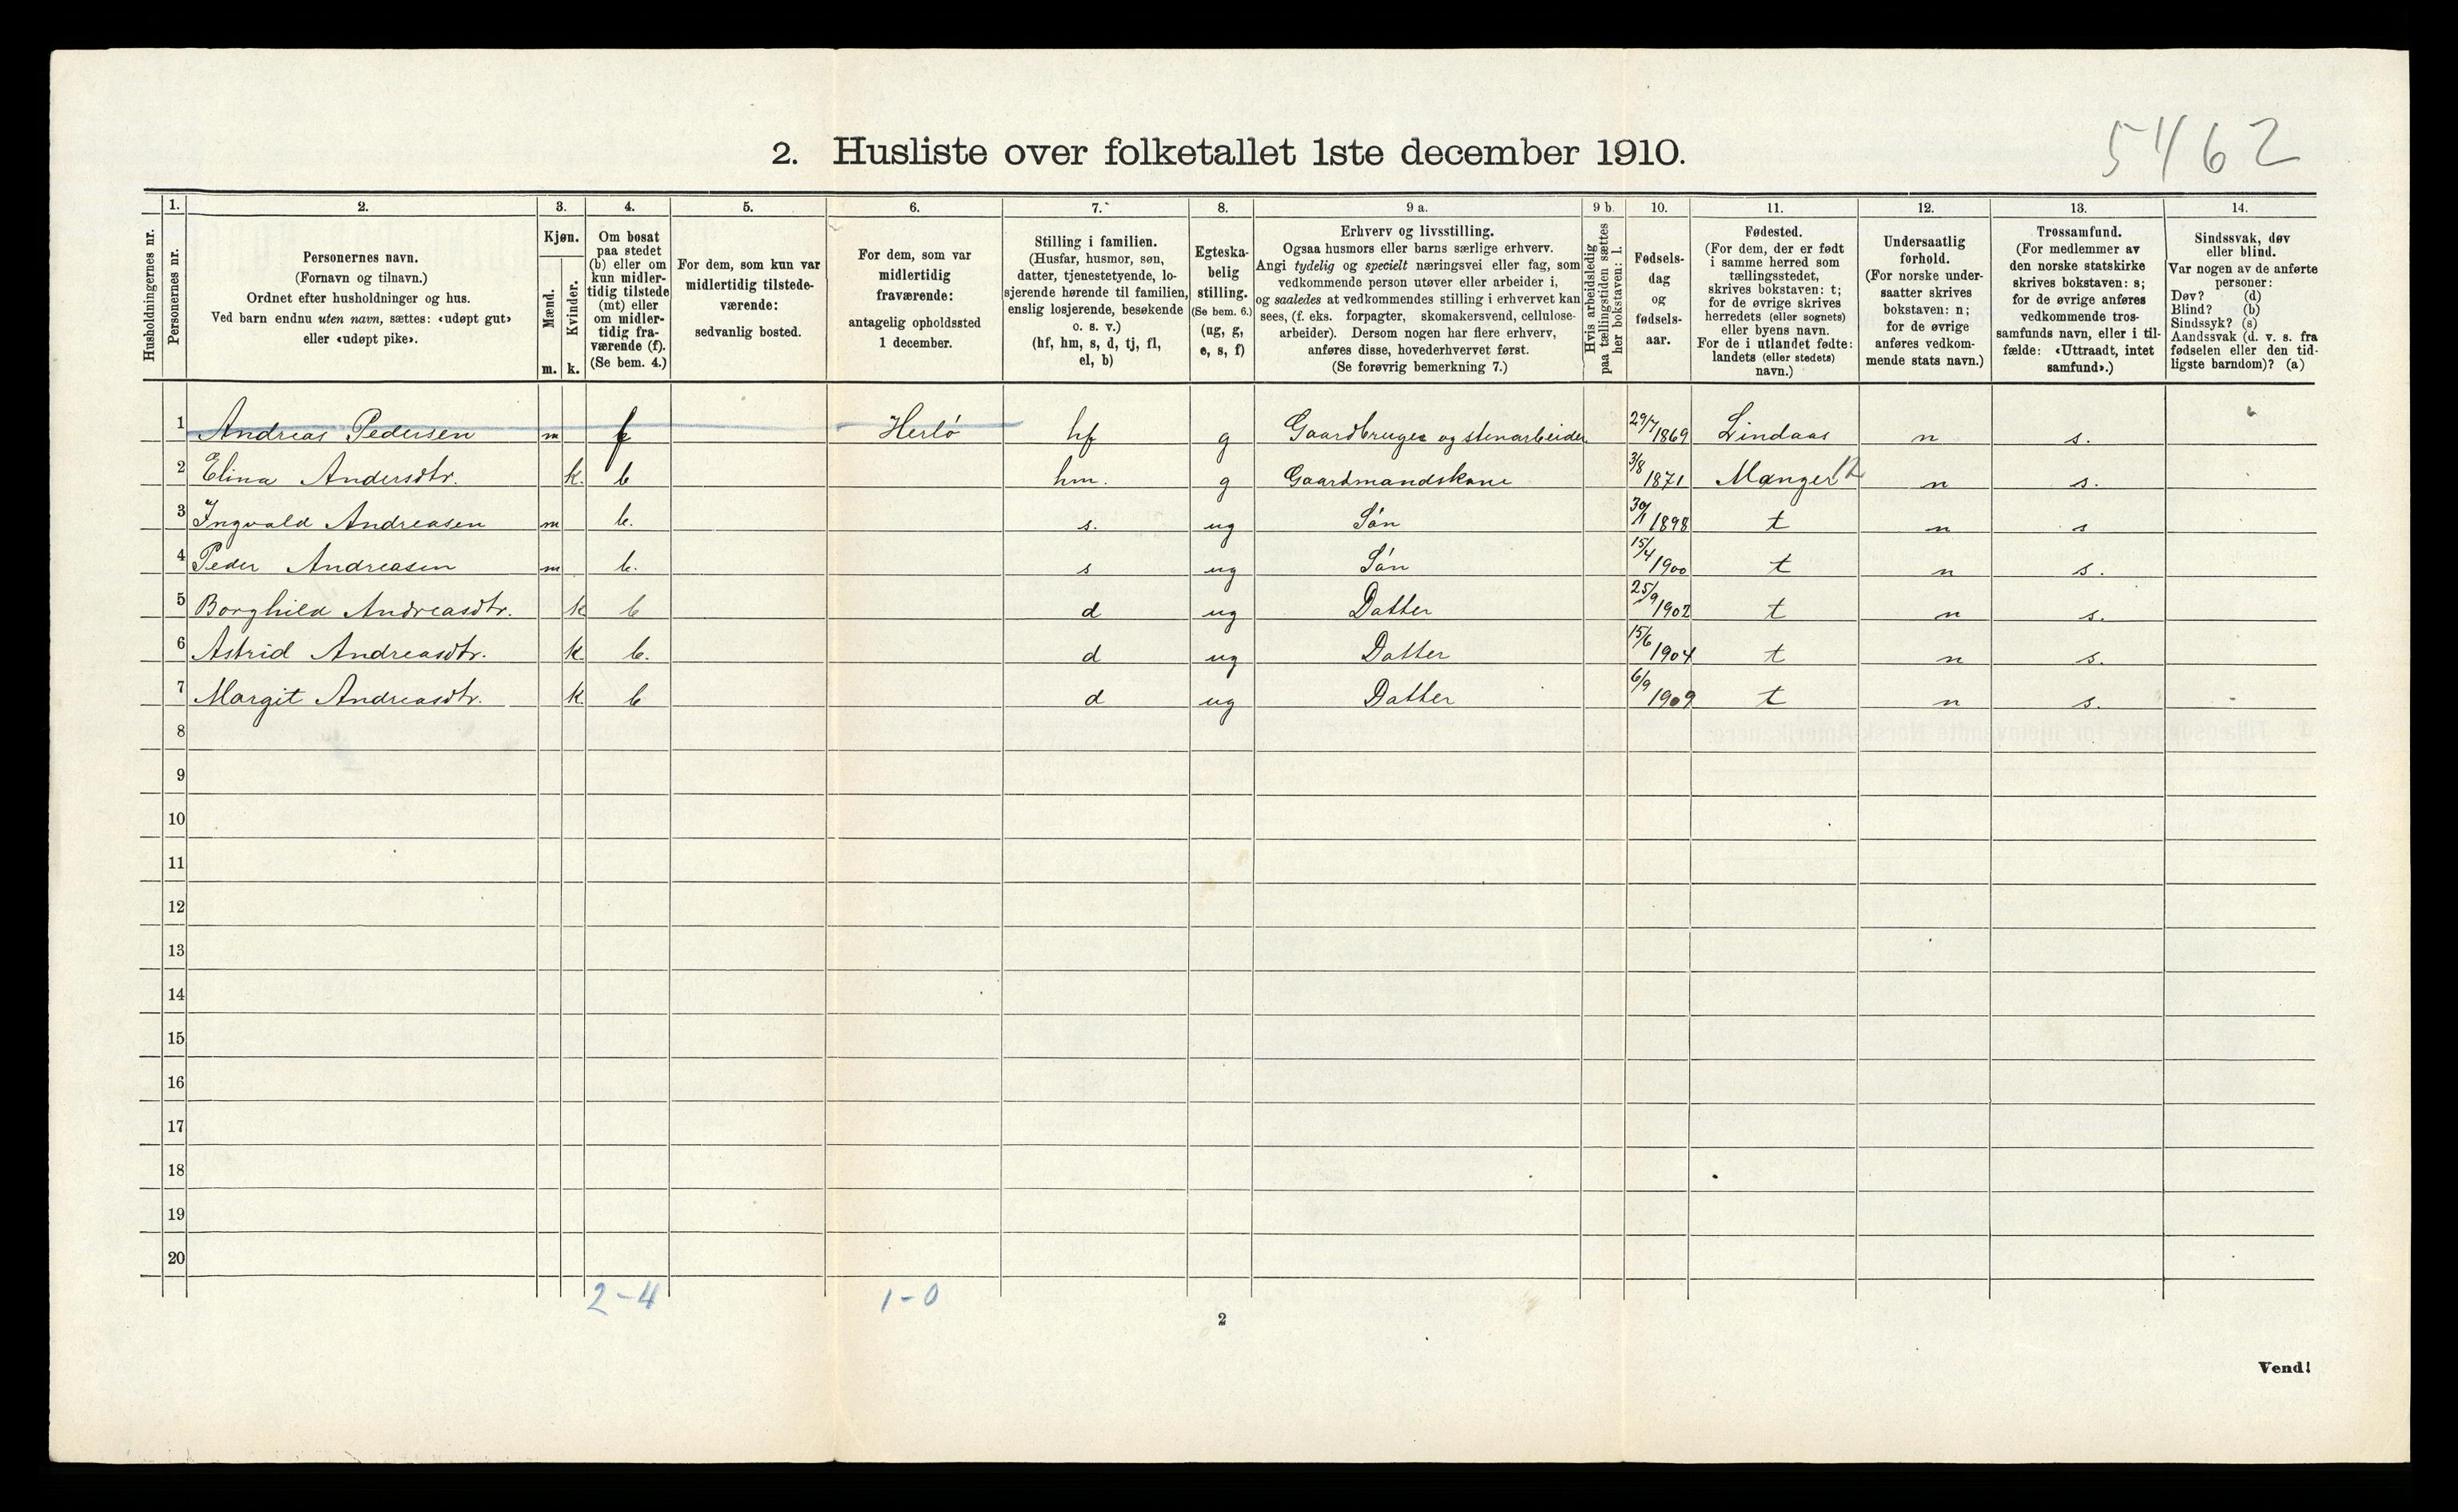 5462
2. Husliste over folketallet 1ste december 1910.
Husholdningernes nr.
1.
Personernes nr.
2.
Personernes navn.
(Fornavn og tilnavn.)
Ordnet efter husholdninger og hus.
Ved barn endnu uten navn, sættes: «udøpt gut»
eller «udøpt pike».
3.
Kjøn.
Mænd.
Kvinder.
m. k.
4.
Om bosat
paa stedet
(b) eller om
kun midler-
tidig tilstede
(mt) eller
om midler-
tidig fra-
værende (f).
(Se bem. 4.)
5.
For dem, som kun var
midlertidig tilstede-
værende:
sedvanlig bosted.
6.
For dem, som var
midlertidig
fraværende:
antagelig opholdssted
1 december.
7.
Stilling i familien.
(Husfar, husmor, søn,
datter, tjenestetyende, lo-
sjerende hørende til familien,
enslig losjerende, besøkende
o. s. v.)
(hf, hm, s, d, tj, fl,
el, b)
8.
Egteska-
belig
stilling.
(Se bem. 6.)
(ug, g,
e, s, f)
9 a.
Erhverv og livsstilling.
Ogsaa husmors eller barns særlige erhverv.
Angi tydelig og specielt næringsvei eller fag, som
vedkommende person utøver eller arbeider i,
og saaledes at vedkommendes stilling i erhvervet kan
sees, (f. eks. forpagter, skomakersvend, cellulose-
arbeider). Dersom nogen har flere erhverv,
anføres disse, hovederhvervet først.
(Se forøvrig bemerkning 7.)
9 b.
Hvis arbeidsledig
paa tællingstiden sættes
her bokstaven: l.
10.
Fødsels-
dag
og
fødsels-
aar.
11.
Fødested.
(For dem, der er født
i samme herred som
tællingsstedet,
skrives bokstaven: t;
for de øvrige skrives
herredets (eller sognets)
eller byens navn.
For de i utlandet fødte:
landets (eller stedets)
navn.)
12.
Undersaatlig
forhold.
(For norske under-
saatter skrives
bokstaven: n;
for de øvrige
anføres vedkom-
mende stats navn.)
13.
Trossamfund.
(For medlemmer av
den norske statskirke
skrives bokstaven: s;
for de øvrige anføres
vedkommende tros-
samfunds navn, eller i til-
fælde: «Uttraadt, intet
samfund».)
14.
Sindssvak, døv
eller blind.
Var nogen av de anførte
personer:
Døv? (d)
Blind? (b)
Sindssyk? (s)
Aandssvak (d. v. s. fra
fødselen eller den tid-
ligste barndom)? (a)
1 Andreas Pedersen m f Herlö hf g Gaardbruger og stenarbeider 29/7 1869 Lindaas n s.
2 Elina Andersdtr. k. b hm. g Gaardmandskone 3/8 1871 Manger 12 n s.
3 Ingvald Andreasen m b. s. ug Sön 30/1 1898 t n s
4 Peder Andreasen m b. s ug Sön 15/4 1900 t n s.
5 Borghild Andreasdtr. k b d ug Datter 25/9 1902 t n s.
6 Astrid Andreasdtr. k. b. d ug Datter 15/6 1904 t n s.
7 Margit Andreasdtr. k. b d ug Datter 6/9 1909 t n s.
8
9
10
11
12
13
14
15
16
17
18
19
20
2-4 1-0
2
Vend!